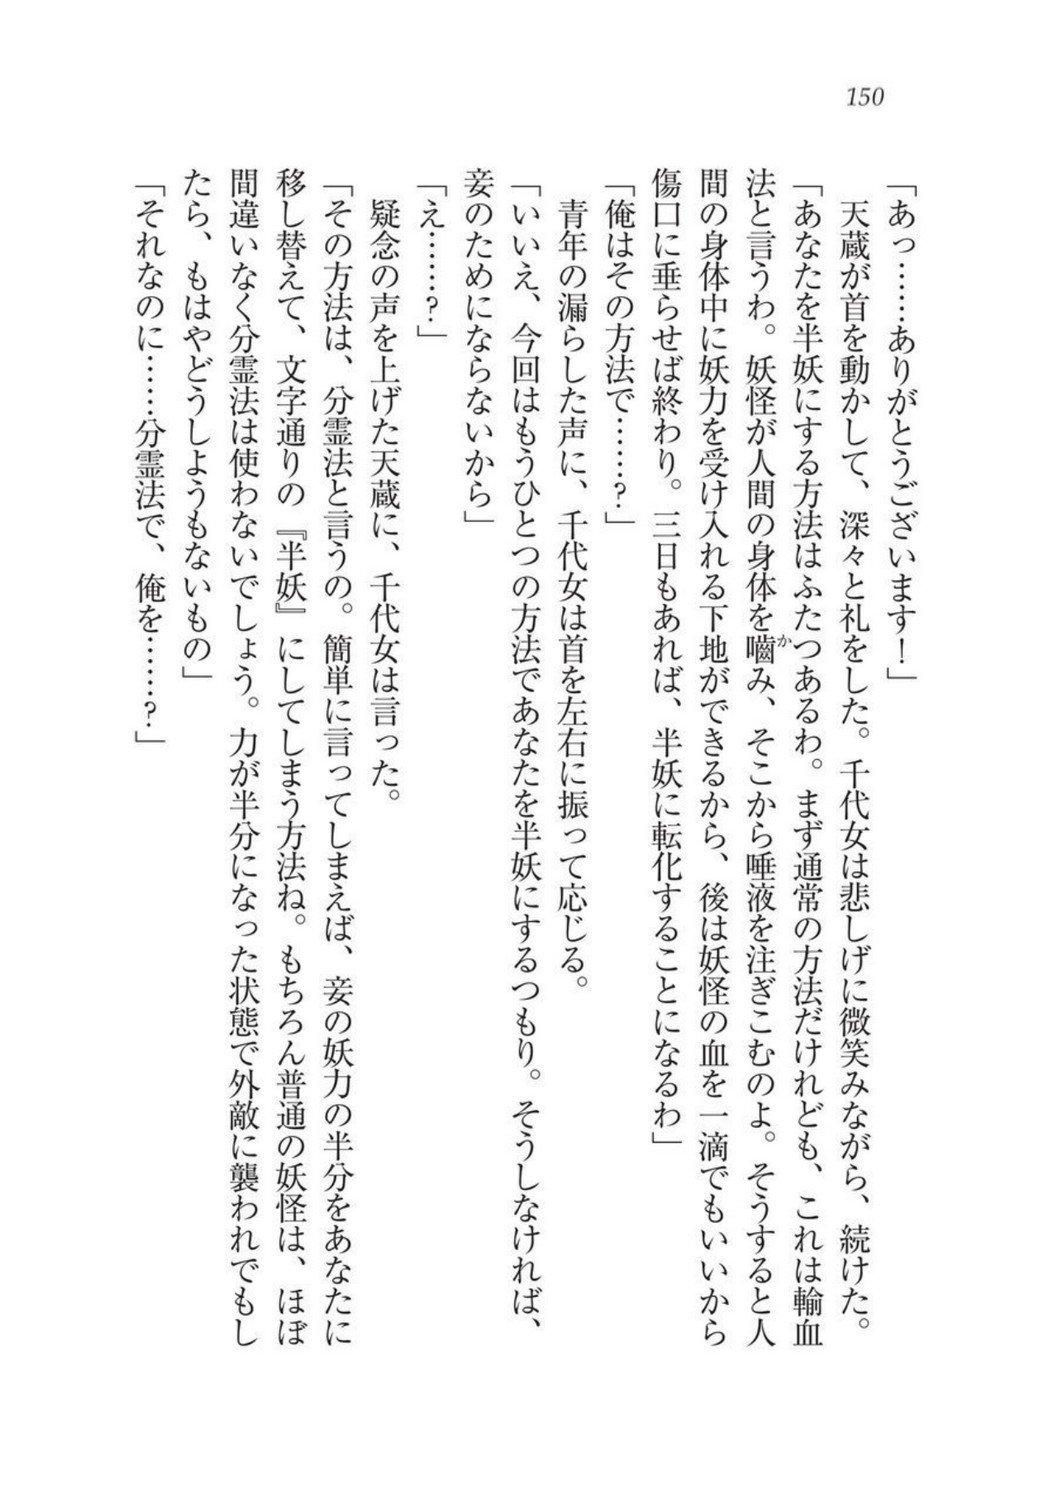 150
「あっ……ありがとうございます！」
　天蔵が首を動かして、深々と礼をした。千代女は悲しげに微笑みながら、続けた。
「あなたを半妖にする方法はふたつあるわ。まず通常の方法だけれども、これは輸血
法と言うわ。妖怪が人間の身体を嚙み、そこから唾液を注ぎこむのよ。そうすると人
間の身体中に妖力を受け入れる下地ができるから、後は妖怪の血を一滴でもいいから
傷口に垂らせば終わり。三日もあれば、半妖に転化することになるわ」
「俺はその方法で……？」
　青年の漏らした声に、千代女は首を左右に振って応じる。
「いいえ、今回はもうひとつの方法であなたを半妖にするつもり。そうしなければ、
妾のためにならないから」
「え……？」
　疑念の声を上げた天蔵に、千代女は言った。
「その方法は、分霊法と言うの。簡単に言ってしまえば、妾の妖力の半分をあなたに
移し替えて、文字通りの『半妖』にしてしまう方法ね。もちろん普通の妖怪は、ほぼ
間違いなく分霊法は使わないでしょう。力が半分になった状態で外敵に襲われでもし
たら、もはやどうしようもないもの」
「それなのに……分霊法で、俺を……？」
か